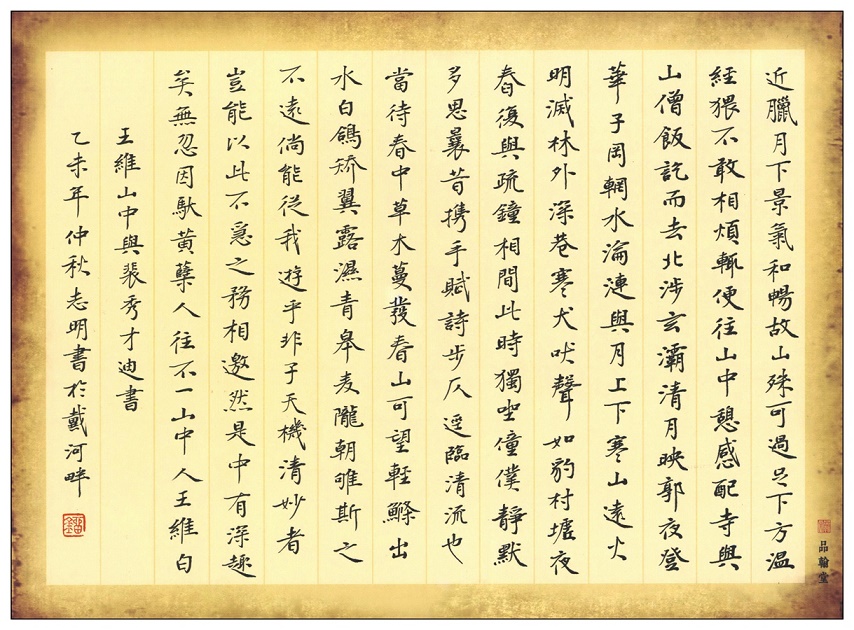 近臘月下景氣和暢故山殊可過足下方溫
經猥不敢相煩輒便往山中憩感配寺與
山僧飯訖而去北涉玄灞清月映郭夜登
華子岡輞水淪漣與月上下寒山遠火
明滅林外深巷寒犬吠聲如豹村墟夜
舂復與疏鐘相間此時獨坐僮僕靜默
多思曩昔攜手賦詩步仄逕臨清流也
當待春中草木蔓發春山可望輕鰷出
水白鷗矯翼露濕青皋麦隴朝雊斯之
不遠倘能從我遊乎非子天機清妙者
豈能以此不急之務相邀然是中有深趣
矣無忽因馱黃蘗人往不一山中人王維白
王維山中與裴秀才迪書
乙未年仲秋志明書於戴河畔
品翰堂